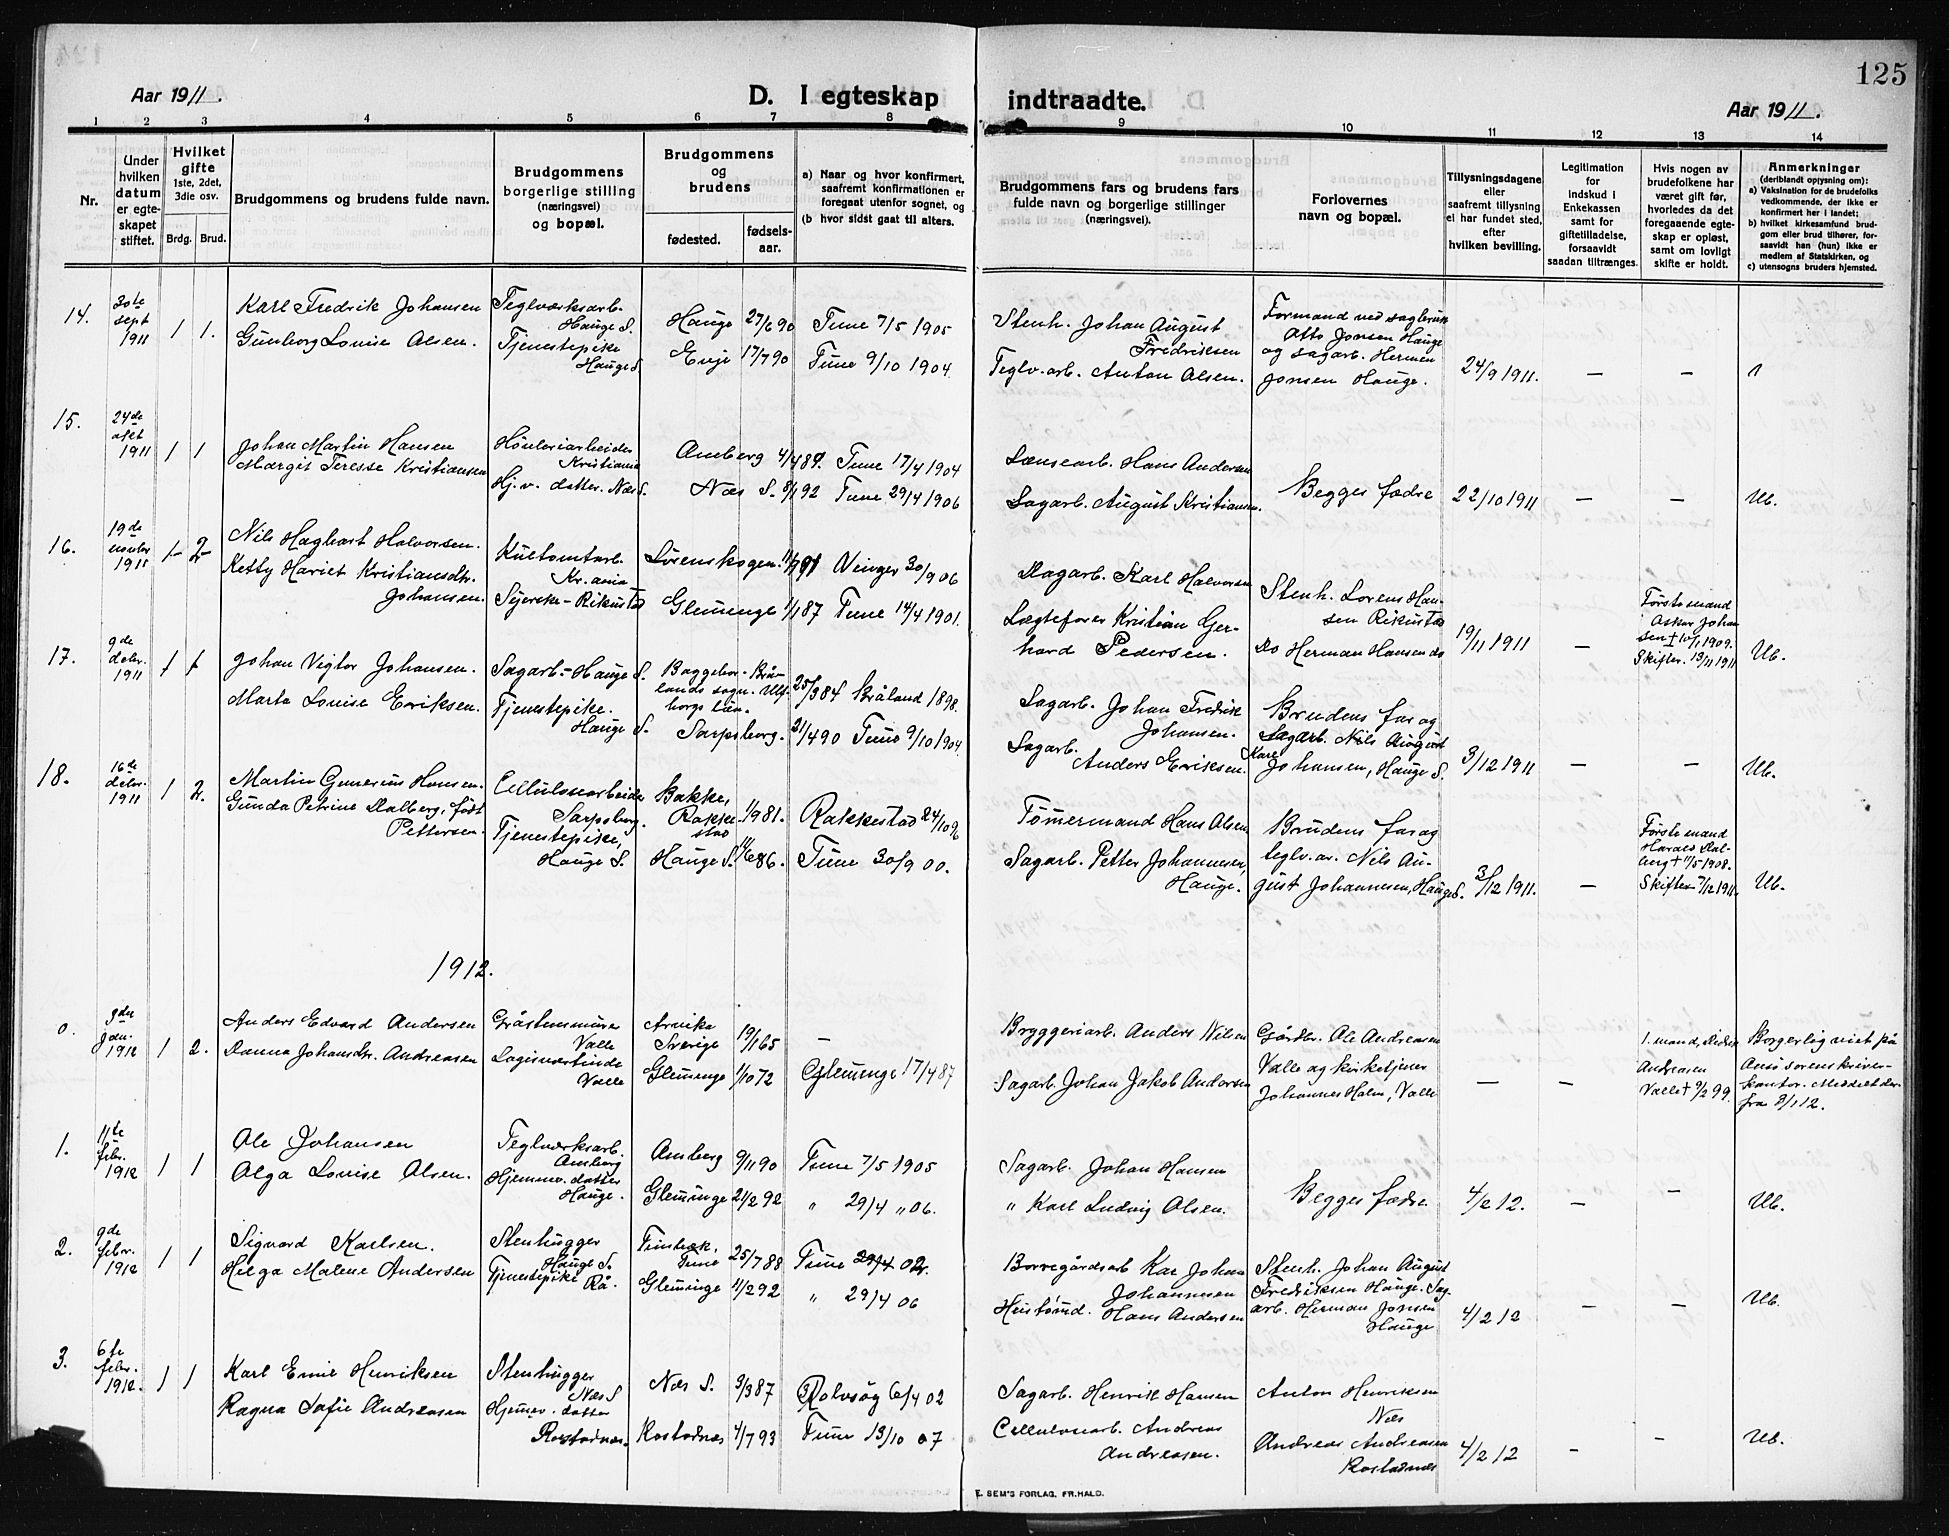 125
Aar 1911.
D. I egteskap indtraadte.
Aar 1911.
1 2 3 4 5 6 7 8 9 10 11 12 13 14
Nr.
Under hvilken datum er egteskapet stiftet.
Hvilket gifte 1ste, 2det, 3die osv.
Brdg. Brud.
Brudgommens og brudens fulde navn.
Brudgommens borgerlige stilling (næringsvei) og bopæl.
Brudgommens og brudens
fødested.
fødselsaar.
a) Naar og hvor konfirmert, saafremt konfirmationen er foregaat utenfor sognet, og
(b hvor sidst gaat til alters.
Brudgommens fars og brudens fars fulde navn og borgerlige stillinger (næringsvei).
Forlovernes navn og bopæl.
Tillysningsdagene eller saafremt tillysning ei har fundet sted, efter hvilken bevilling.
Legitimation for indskud i Enkekassen samt for giftetilladelse, forsaavidt saadan tiltrænges.
Hvis nogen av brudefolkene har været gift før, hvorledes da det foregaaende egteskap er opløst, samt om lovligt skifte er holdt.
Anmerkninger (deriblandt opysning om):
a) Vaksination for de brudefolks vedkommende, der ikke er konfirmert her i landet;
b) hvilket kirkesamfund brudgom eller brud tilhører, forsaavidt han (hun) ikke er medlem af Statskirken, og
c) utensogns bruders hjemsted.
14. 30te sept 1911 1 1.
Karl Fredrik Johansen
Gunborg Lovise Olsen.
Teglverksarb. Hauge S.
Tjenestepike Hauge S.
Hauge 27/6 90 Tune 7/5 1905
Enje 17/7 90 Tune 9/10 1904
Stenh. Johan August Fredriksen
Teglv. arb. Anton Olsen.
Formand ved sagbruk Otto Jonsen Hauge og sagarb. Herman Jonsen Hauge.
24/9 1911. — — 
15. 24de okt 1911 1 1
Johan Martin Hansen
Margit Teresse Kristiansen
Kristiania
Hj. v. datter. Næs S.
Amberg 4/4 89. Tune 17/4 1904
Næs S. 92 Tune 29/4 1906
Lænsearb. Hans Andersen
Sagarb. August Kristiansen.
Begges fædre
22/10 1911 — — Ub.
16. 19de novbr 1911 1 2
Nils Hagbart Halvorsen.
Ketty Hariet Kristiansdtr. Johansen.
Kr.ania
Syerske - Rikustad
Lørenskogen. Vinger 30/9 06
Glemminge 1/1 87 Tune 14/4 1901.
Dagarb. Karl Halvorsen
Lægtefører Kristian Gerhard Pedersen.
Stenh. Lorens Hansen Rikustad
Do Herman Hansen do
19/11 1911
Første mand Oskar Johansen † 10/1 1909. Skifte. 13/11 1911
Ub.
17. 9de debr. 1911 1 1
Johan Vigtor Johansen.
Marta Lovise Eriksen.
Sagarb. - Hauge S.
Tjenestepike. Hauge S.
25/3 84 Bråland 1898.
Sarpsborg. 21/4 90 Tune 9/10 1904.
Sagarb. Johan Fredrik Johansen.
Sagarb. Anders Eriksen.
Brudens far og Sagarb. Nils August Karl Johansen, Hauge S.
3/12 1911 — — Ub.
18. 16te debr. 1911 1 2.
Martin Gunerius Hansen.
Gunda Petrine Dalberg, født Pettersen.
Cellulosearbeider Sarpsborg.
Tjenestepike, Hauge S.
Bakke, Rakkestad 1/9 81. Rakkestad 24/10 96
Hauge S. 86. Tune 30/9 00.
Tømermand Hans Olsen
Sagarb. Petter Johannesen, Hauge.
Brudens far og teglv. ar. Nils August Johannesen, Hauge S.
3/12 1911. —
Første mand Harald Dalberg † 11/5 1908. Skifte 7/12 1911
Ub.
1912.
0. 9de jan. 1912 1 2.
Anders Edvard Andersen
Danna Johansdtr. Andreasen
Gråstensmurer Valle
Logisvertinde Valle
Arvika Sverige 19/1 65 —
Glemminge 1/10 72 Glemminge 17/4 87
Bryggeriarb. Anders Nilsen
Sagarb. Johan Jakob Andersen
Gårdbr. Ole Andreasen Valle og kirketjener Johannes Holm, Valle
— —
1. mand, Andreasen Valle † 9/2 99.
Borgerlig viet på Onsø sorenskriverkontor. Meddelt der fra 9/1 12.
1. 11te febr. 1912 1 1
Ole Johansen
Olga Lovise Olsen.
Teglverksarb. Amberg
Hjemmev. datter Hauge.
Amberg 9/11 90 Tune 7/5 1905
Glemminge 21/2 92 " 29/4 " 06.
Sagarb. Johan Hansen
" Karl Ludvig Olsen.
Begges fædre
4/2 12. — — Ub.
2. 9de febr. 1912 1 1
Sigvard Karlsen.
Helga Malene Andersen
Stenhugger Hauge S.
Tjenestepike Rå.
Tune 25/7 88 Tune 02.
Glemminge 11/2 92 " 29/4 06
Borregårdsarb Karl Johan Johannesen
Hustømd. Hans Andersen
Stenh. Johan August Fredriksen Hauge. Sagarb. Herman Jonsen Hauge
4/2 12 — — Ub.
3. 6te febr. 1912. 1 1
Karl Emil Henriksen
Ragna Sofie Andreasen
Stenhugger Næs S
Hjemmev. datter Rostadnes.
Næs S. 3/3 87 Rolvsøy 6/4 02
Rostadnes 4/7 93 Tune 13/10 07
Sagarb. Henrik Hansen
Cellulosearb. Andreas Andreasen.
Anton Henriksen Næs
Andreas Andreasen Rostadnes
4/2 12 — — Ub.
E. SEM'S FORLAG, FR.HALD.